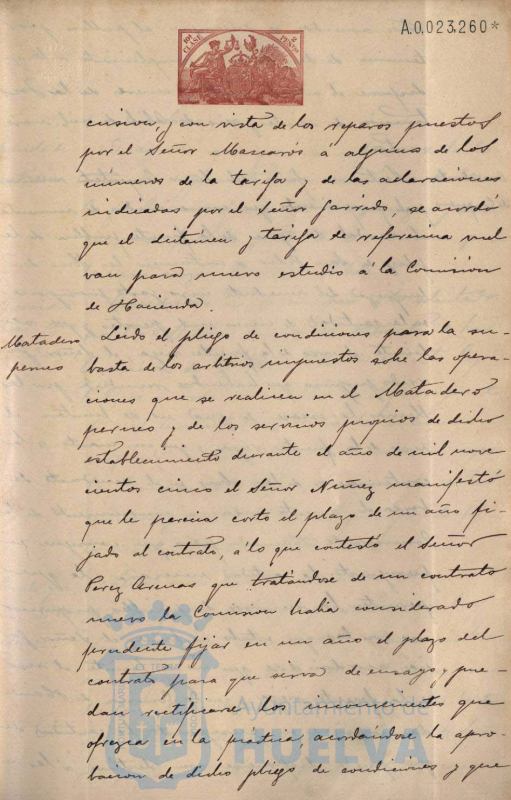 10ª CLASE
2 PESETAS
A.0,023,260*
cusion, y con vista de los reparos puestos
por el Señor Mascarós á alguno de los
numeros de la tarifa y de las aclaraciones
indicadas por el Señor Garrido, se acordó
que el dictámen y tarifa de referencia vuel
van para nuevo estudio á la Comision
de Hacienda.
Matadero
perneo
Leido el pliego de condiciones para la su-
basta de los arbitrios impuestos sobre las opera-
ciones que se realicen en el Matadero
perneo y de los servicios propios de dicho
establecimiento durante el año de mil nove
cientos cinco el Señor Nuñez manifestó
que le parecia corto el plazo de un año fi-
jado al contrato, á lo que contestó el Señor
Perez Arenas que tratándose de un contrato
nuevo la Comision habia considerado
prudente fijar en un año el plazo del
contrato para que sirva de ensayo y pue-
dan rectificarse los inconvenientes que
ofrezca en la practica, acordandose la apro-
bacion de dicho pliego de condiciones y que
Ayuntamiento de
HUELVA